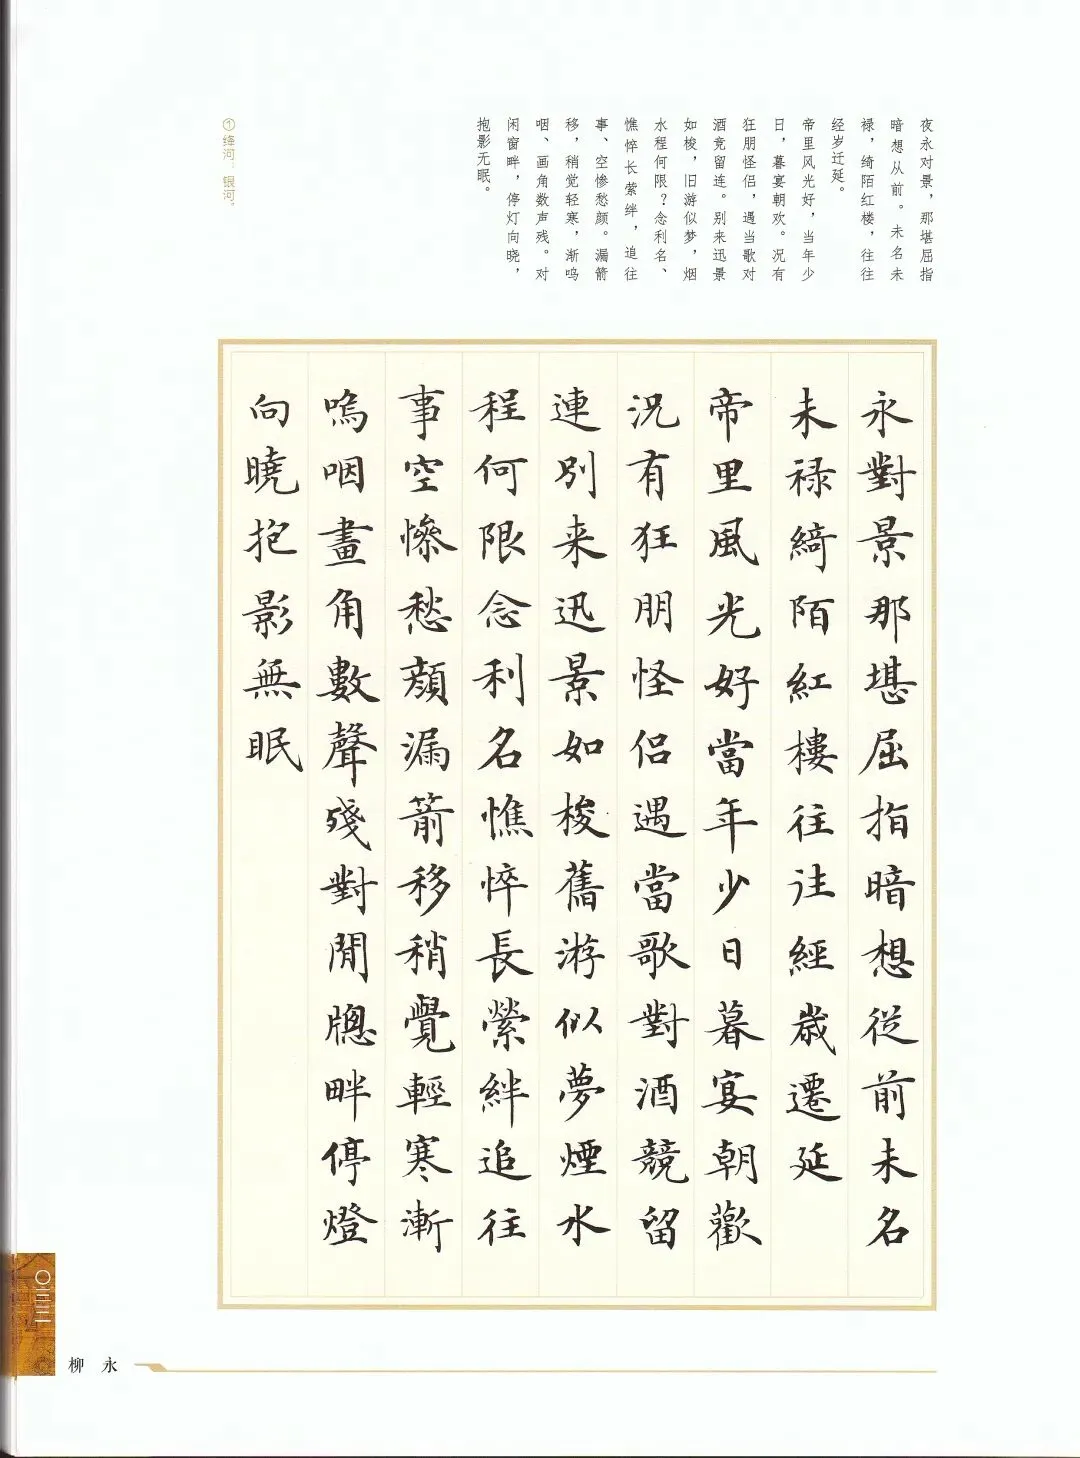 夜永对景，那堪屈指
暗想从前。未名未
禄，绮陌红楼，往往
经岁迁延。
帝里风光好，当年少
日，暮宴朝欢。况有
狂朋怪侣，遇当歌对
酒竞留连。别来迅景
如梭，旧游似梦，烟
水程何限？念利名、
憔悴长萦绊，追往
事、空惨愁颜。漏箭
移，稍觉轻寒，渐呜
咽、画角数声残。对
闲窗畔，停灯向晓，
抱影无眠。
①绛河：银河。
永對景那堪屈指暗想從前未名
未禄綺陌紅樓往往經歲遷延
帝里風光好當年少日暮宴朝歡
況有狂朋怪侶遇當歌對酒競留
連別来迅景如梭舊游似夢煙水
程何限念利名憔悴長縈絆追往
事空慘愁顏漏箭移稍覺輕寒漸
嗚咽畫角數聲殘對閒牕畔停燈
向曉抱影無眠
〇三三
柳永